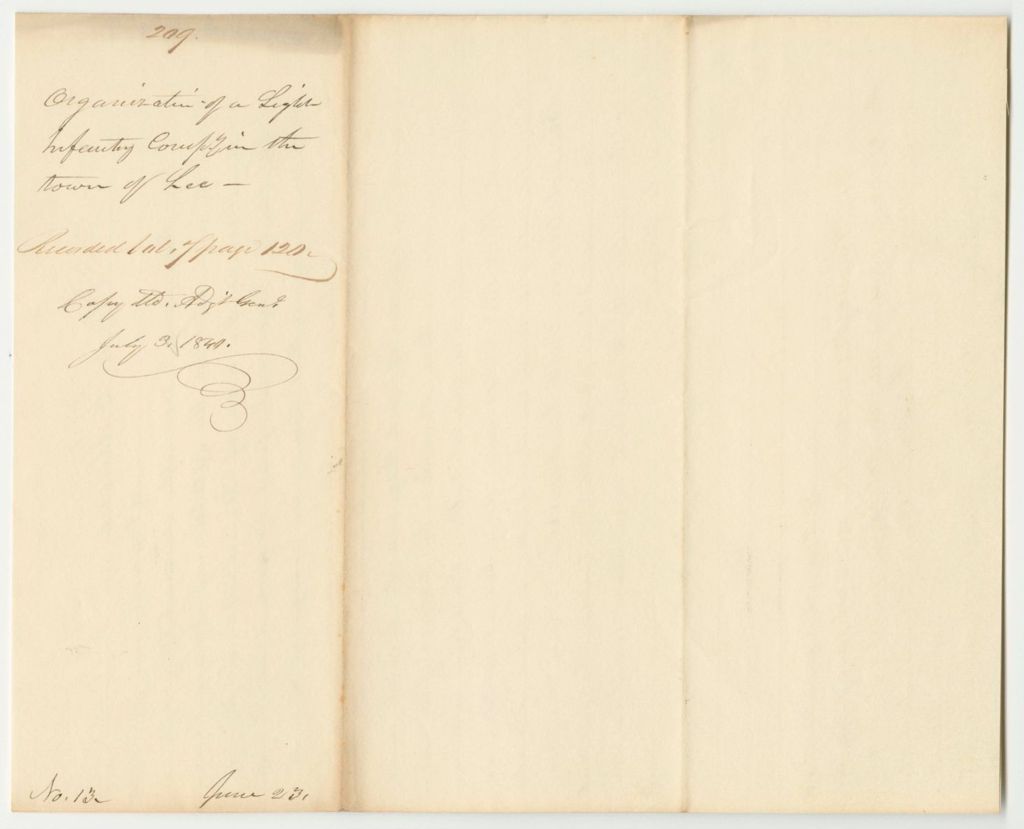 209.
Organization of a Light
Infantry Comp'y in the
town of Lee —
Recorded Vol. 7 page 120.
Copy dld. Adj't Gen'l
July 3, 1841.
No. 13.
June 23,